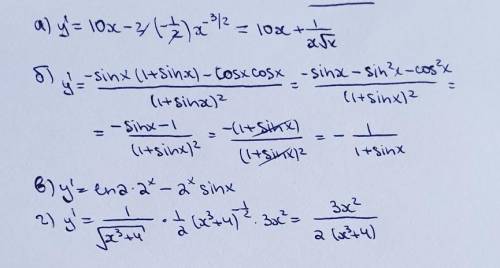 а) y' = 10x - 2·(-1/2) x^(-3/2) = 10x + 1/(x√x)
б) y' = (-sinx (1+sinx) - cosx cosx)/(1+sinx)² = (-sinx - sin²x - cos²x)/(1+sinx)² =
= (-sinx - 1)/(1+sinx)² = (-(1+sinx))/(1+sinx)² = - 1/(1+sinx)
в) y' = ln2 · 2ˣ - 2ˣ sinx
г) y' = 1/√(x³+4) · 1/2 (x³+4)^(-1/2) · 3x² = 3x²/(2(x³+4))